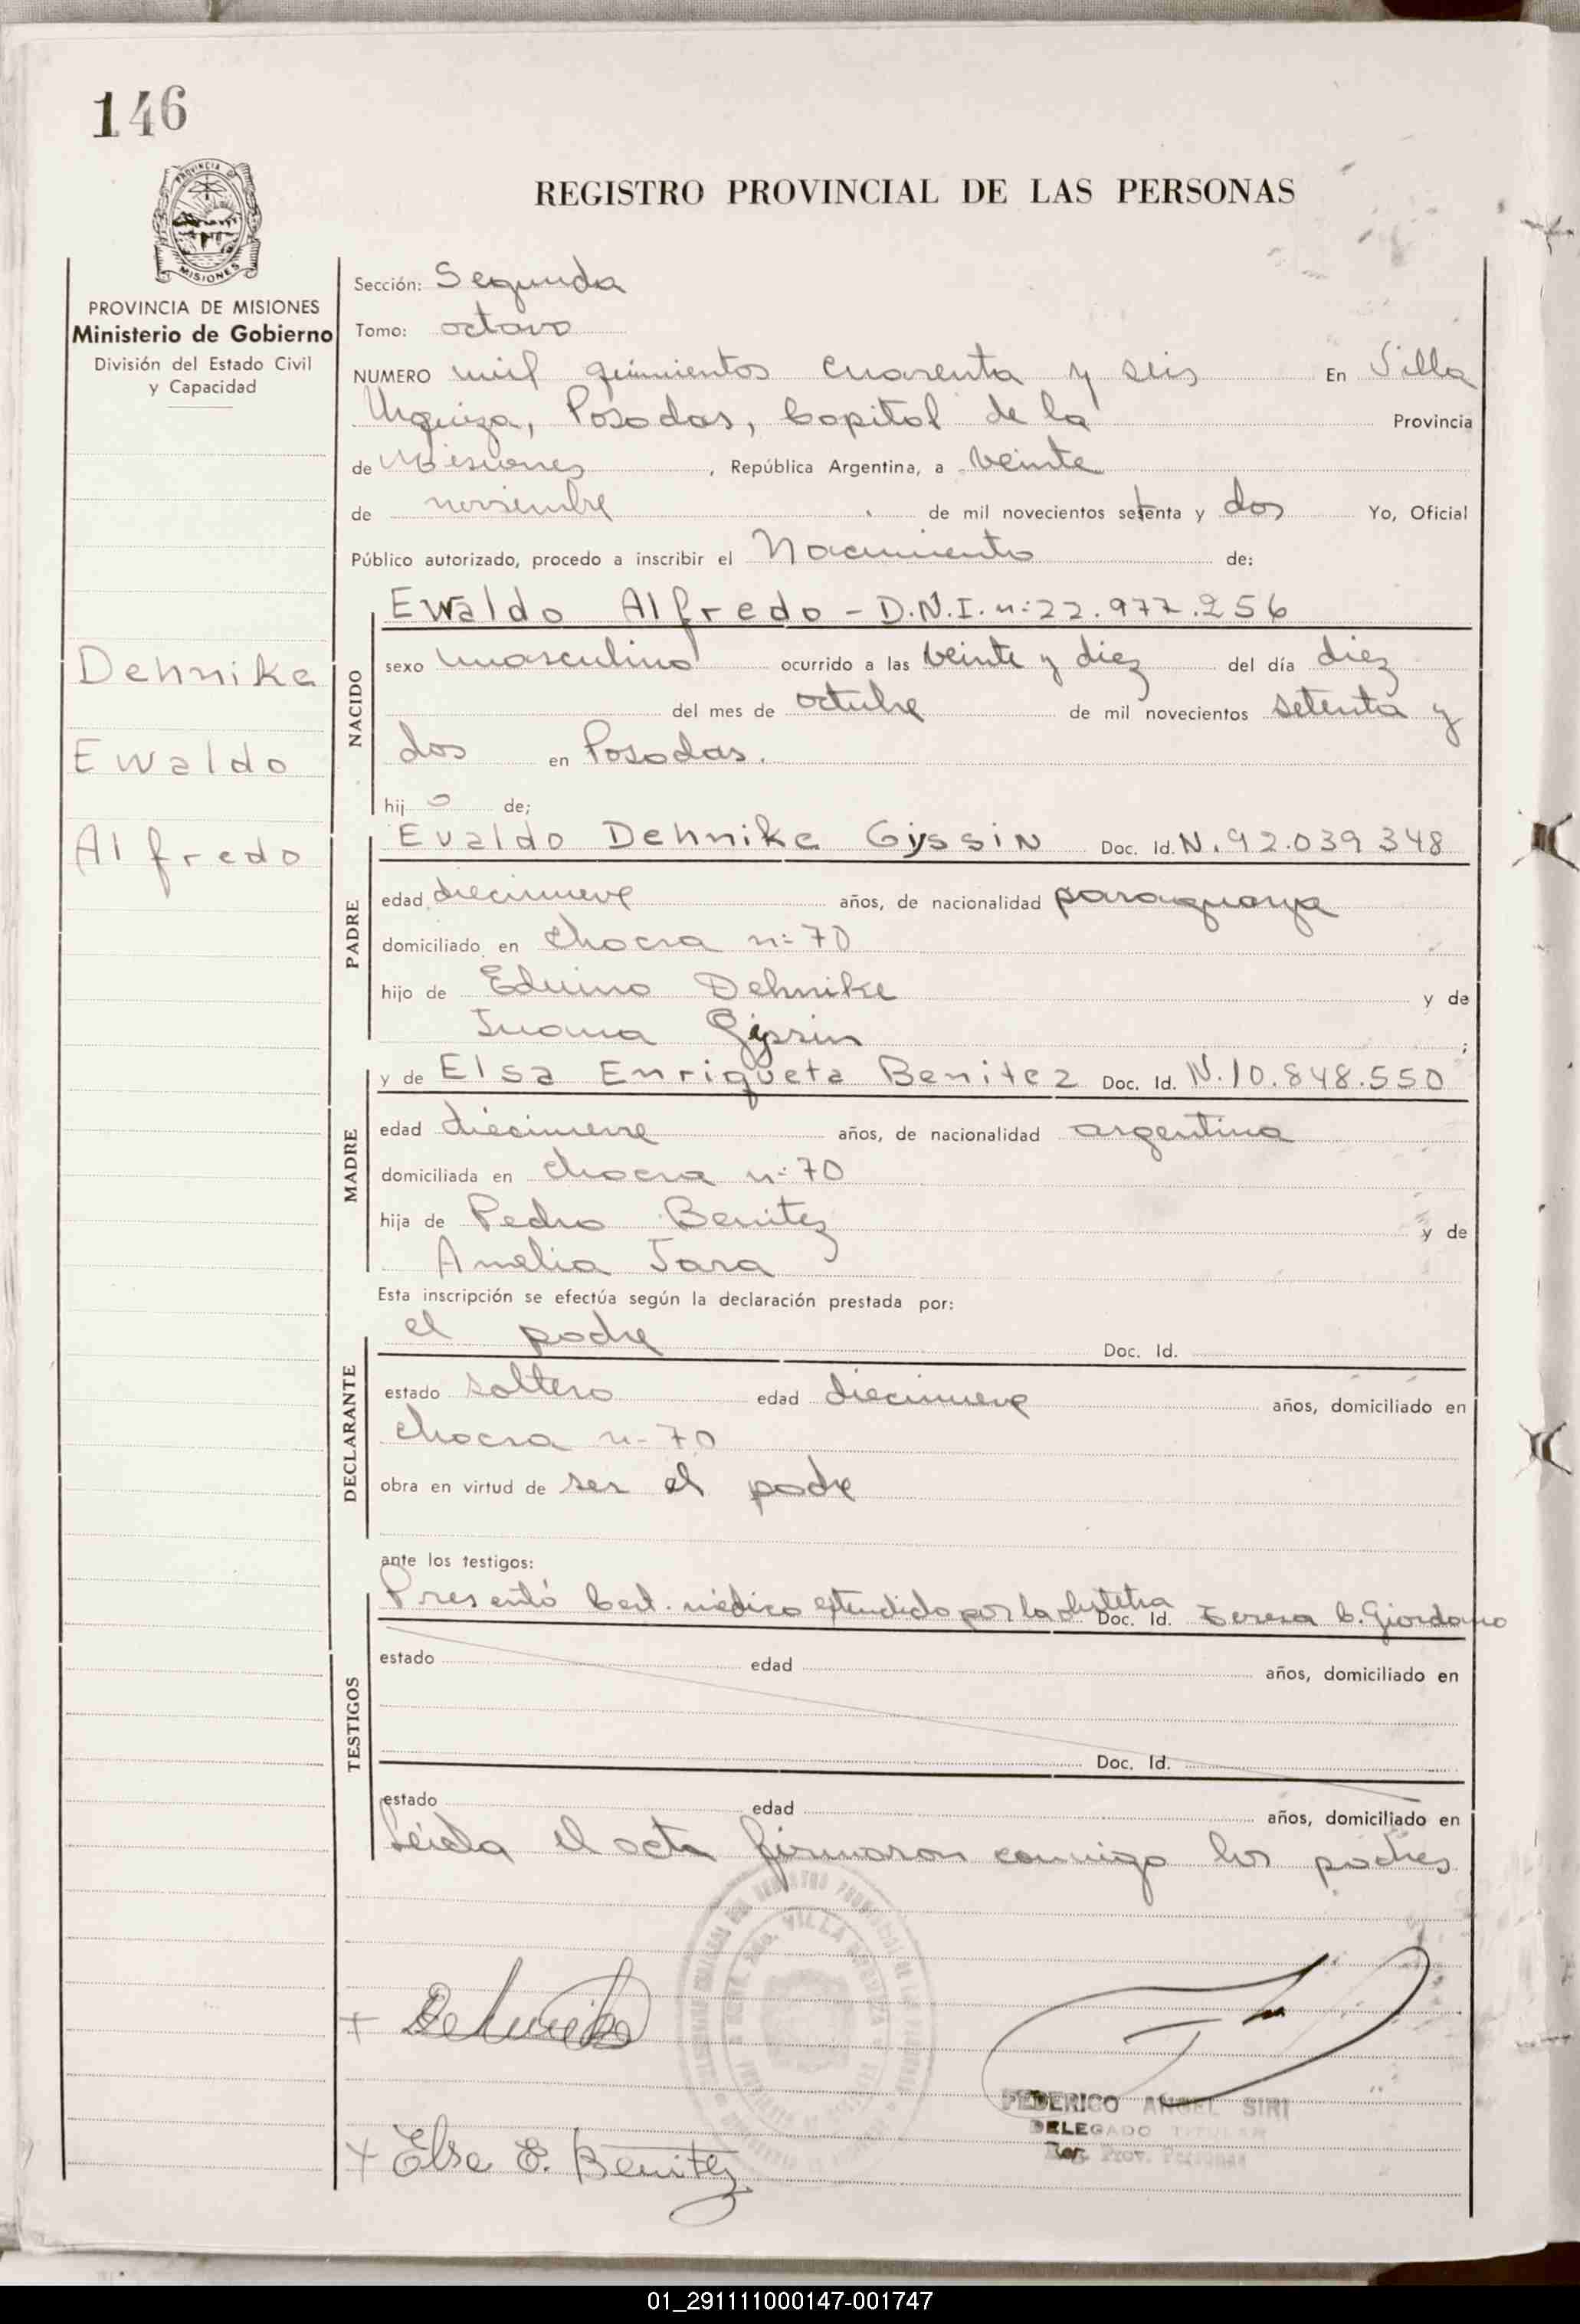 146
PROVINCIA DE
MISIONES
REGISTRO PROVINCIAL DE LAS PERSONAS
PROVINCIA DE MISIONES
Ministerio de Gobierno
División del Estado Civil
y Capacidad
Dehnike
Ewaldo
Alfredo
Sección: Segunda
Tomo: octavo
NUMERO mil quinientos cuarenta y seis En Villa
Urquiza, Posadas, Capital de la Provincia
de Misiones, República Argentina, a veinte
de noviembre de mil novecientos setenta y dos Yo, Oficial
Público autorizado, procedo a inscribir el Nacimiento de:
NACIDO
Ewaldo Alfredo - D.N.I. n: 22.977.256
sexo masculino ocurrido a las veinte y diez del día diez
del mes de octubre de mil novecientos setenta y
dos en Posadas.
hij o de;
PADRE
Evaldo Dehnike Gyssin Doc. Id. N. 92.039 348
edad diecinueve años, de nacionalidad paraguaya
domiciliado en chacra n: 70
hijo de Eduino Dehnike y de
Juana Gissin ;
MADRE
y de Elsa Enriqueta Benitez Doc. Id. N. 10.848.550
edad diecinueve años, de nacionalidad argentina
domiciliada en chacra n: 70
hija de Pedro Benitez y de
Amelia Jara
Esta inscripción se efectúa según la declaración prestada por:
DECLARANTE
el padre Doc. Id.
estado soltero edad diecinueve años, domiciliado en
chacra n- 70
obra en virtud de ser el padre
ante los testigos:
TESTIGOS
Presentó Cert. médico extendido por la obstetra Doc. Id. Teresa C. Giordano
estado edad años, domiciliado en
Doc. Id.
estado edad años, domiciliado en
Leída el acta firmaron conmigo los padres
+ Dehnike
+ Elsa E. Benitez
VILLA URQUIZA
FEDERICO ANGEL SIRI
DELEGADO TITULAR
Reg. Prov. Personas
01_291111000147-001747